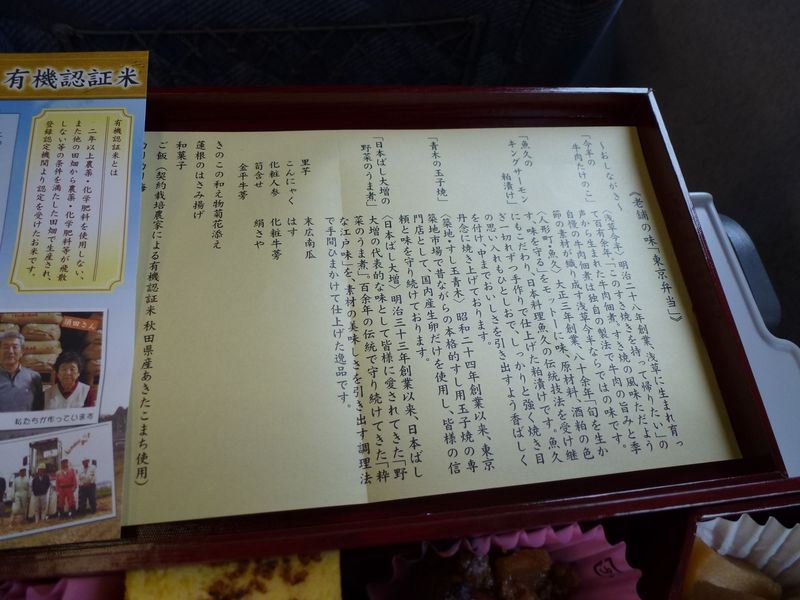 《老舗の味「東京弁当」》
～おしながき～
「今半の
牛肉たけのこ」
(浅草今半) 明治二十八年創業、浅草に生まれ育っ
て百有余年、「このすき焼きを持って帰りたい」の
声から生まれた牛肉佃煮。すき焼の風味ただよう
自慢の牛肉佃煮は独自の製法で牛肉の旨みと季
節の素材が織り成す浅草今半ならではの味です。
「魚久の
キングサーモン
粕漬け」
(人形町・魚久) 大正三年創業、八十余年「旬を生か
す、味を守る」をモットーに味、原材料、酒粕の色
にもこだわり、日本料理魚久の伝統技法を受け継
ぎ一切れずつ手作りで仕上げた粕漬けです。魚久
の思い入れもひとしおで、しっかりと強く焼き目
を付け、中までおいしさを引き出すよう香ばしく
丹念に焼き上げております。
「青木の玉子焼」
(築地・すし玉青木) 昭和二十四年創業以来、東京
築地市場で昔ながらの本格的すし用玉子焼の専
門店として、国内産生卵だけを使用し、皆様の信
頼と味を守り続けております。
「日本ばし大増の
野菜のうま煮」
(日本ばし大増) 明治三十三年創業以来、日本ばし
大増の代表的な味として皆様に愛されてきた「野
菜のうま煮」。百余年の伝統で守り続けてきた「粋
な江戸味」を、素材の美味しさを引き出す調理法
で手間ひまかけて仕上げた逸品です。
里芋 末広南瓜
こんにゃく はす
化粧人参 化粧牛蒡
筍含せ 絹さや
金平牛蒡
きのこの和え物菊花添え
蓮根のはさみ揚げ
和菓子
ご飯(契約栽培農家による有機認証米 秋田県産あきたこまち使用)
カリカリ梅
有機認証米
有機認証米とは
二年以上農薬・化学肥料を使用しない、
また他の田畑から農薬・化学肥料等が飛散
しない等の条件を満たした田畑で生産され、
登録認定機関より認定を受けたお米です。
須田さん
私たちが作っています